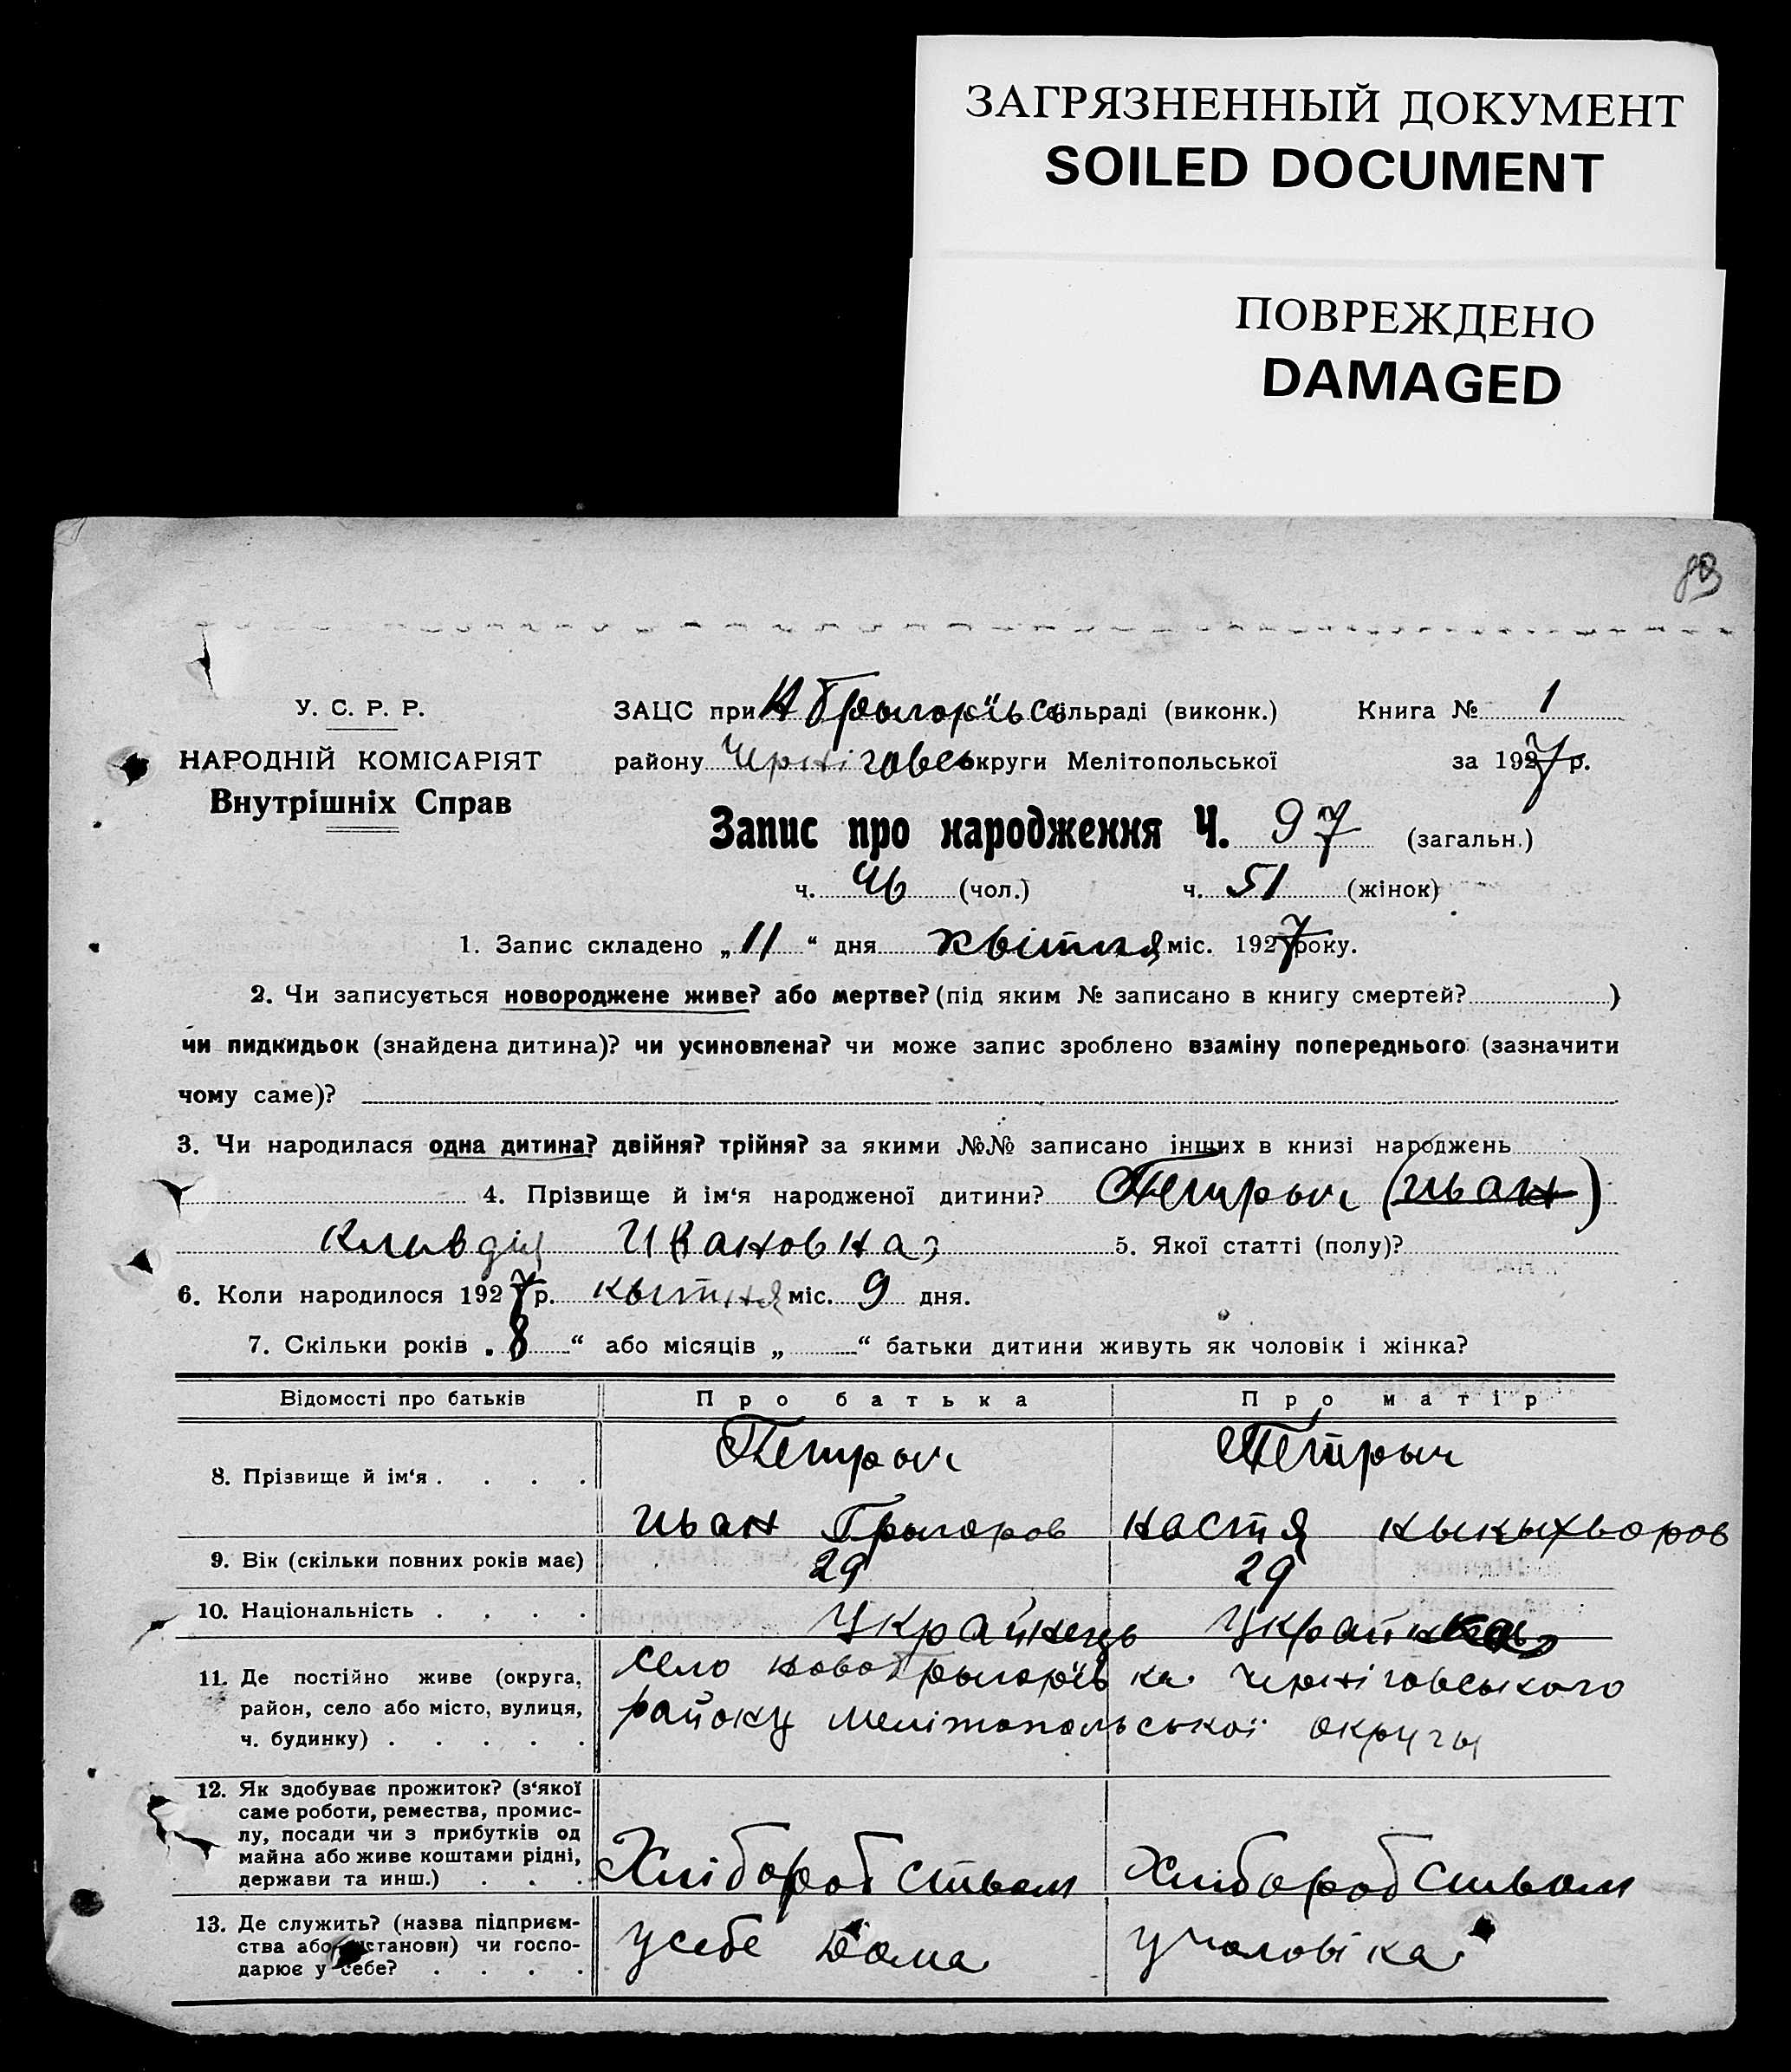 ЗАГРЯЗНЕННЫЙ ДОКУМЕНТ
SOILED DOCUMENT
ПОВРЕЖДЕНО
DAMAGED
У. С. Р. Р.
НАРОДНІЙ КОМІСАРІЯТ
Внутрішніх Справ
ЗАЦС при Н Грыгорїьсь сільраді (виконк.) Книга № 1
району Чернігобськ округи Мелітопольської за 1927 р.
Запис про народження Ч. 97 (загальн.)
ч. 46 (чол.) ч. 51 (жінок)
1. Запис складено „11“ дня квітня міс. 1927 року.
2. Чи записується новороджене живе? або мертве? (під яким № записано в книгу смертей? )
чи пидкидьок (знайдена дитина)? чи усиновлена? чи може запис зроблено взаміну попереднього (зазначити
чому саме)?
3. Чи народилася одна дитина? двійня? трійня? за якими №№ записано інших в книзі народжень
4. Прізвище й ім‘я народженої дитини? Петрыч (иван)
Ивановна 5. Якої статті (полу)?
6. Коли народилося 1927 р. квытня міс. 9 дня.
7. Скільки років „8“ або місяців „ “ батьки дитини живуть як чоловік і жінка?
Відомості про батьків Про батька Про матір
8. Прізвище й ім‘я . . . . Петрыч Петрыч
иван Грыгоров настя
9. Вік (скільки повних років має) 29 29
10. Національність . . . . Украйнець Украйнка
11. Де постійно живе (округа, район, село або місто, вулиця, ч. будинку) . . . . . село новогрыгорїівка Черніговського
району мелітопольської округы
12. Як здобуває прожиток? (з‘якої
саме роботи, ремества, промис-
лу, посади чи з прибутків од
майна або живе коштами рідні,
держави та инш.) . . . Хліборобством Хліборобством
13. Де служить? (назва підприєм-
ства або установи) чи госпо-
дарює у себе? . . . . усебе Дома учоловіка